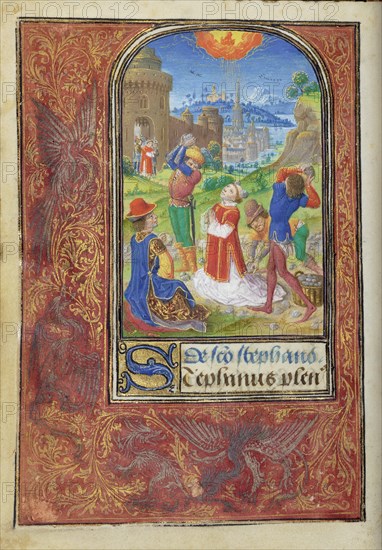 De sc̄o stephano.
STephanus plen